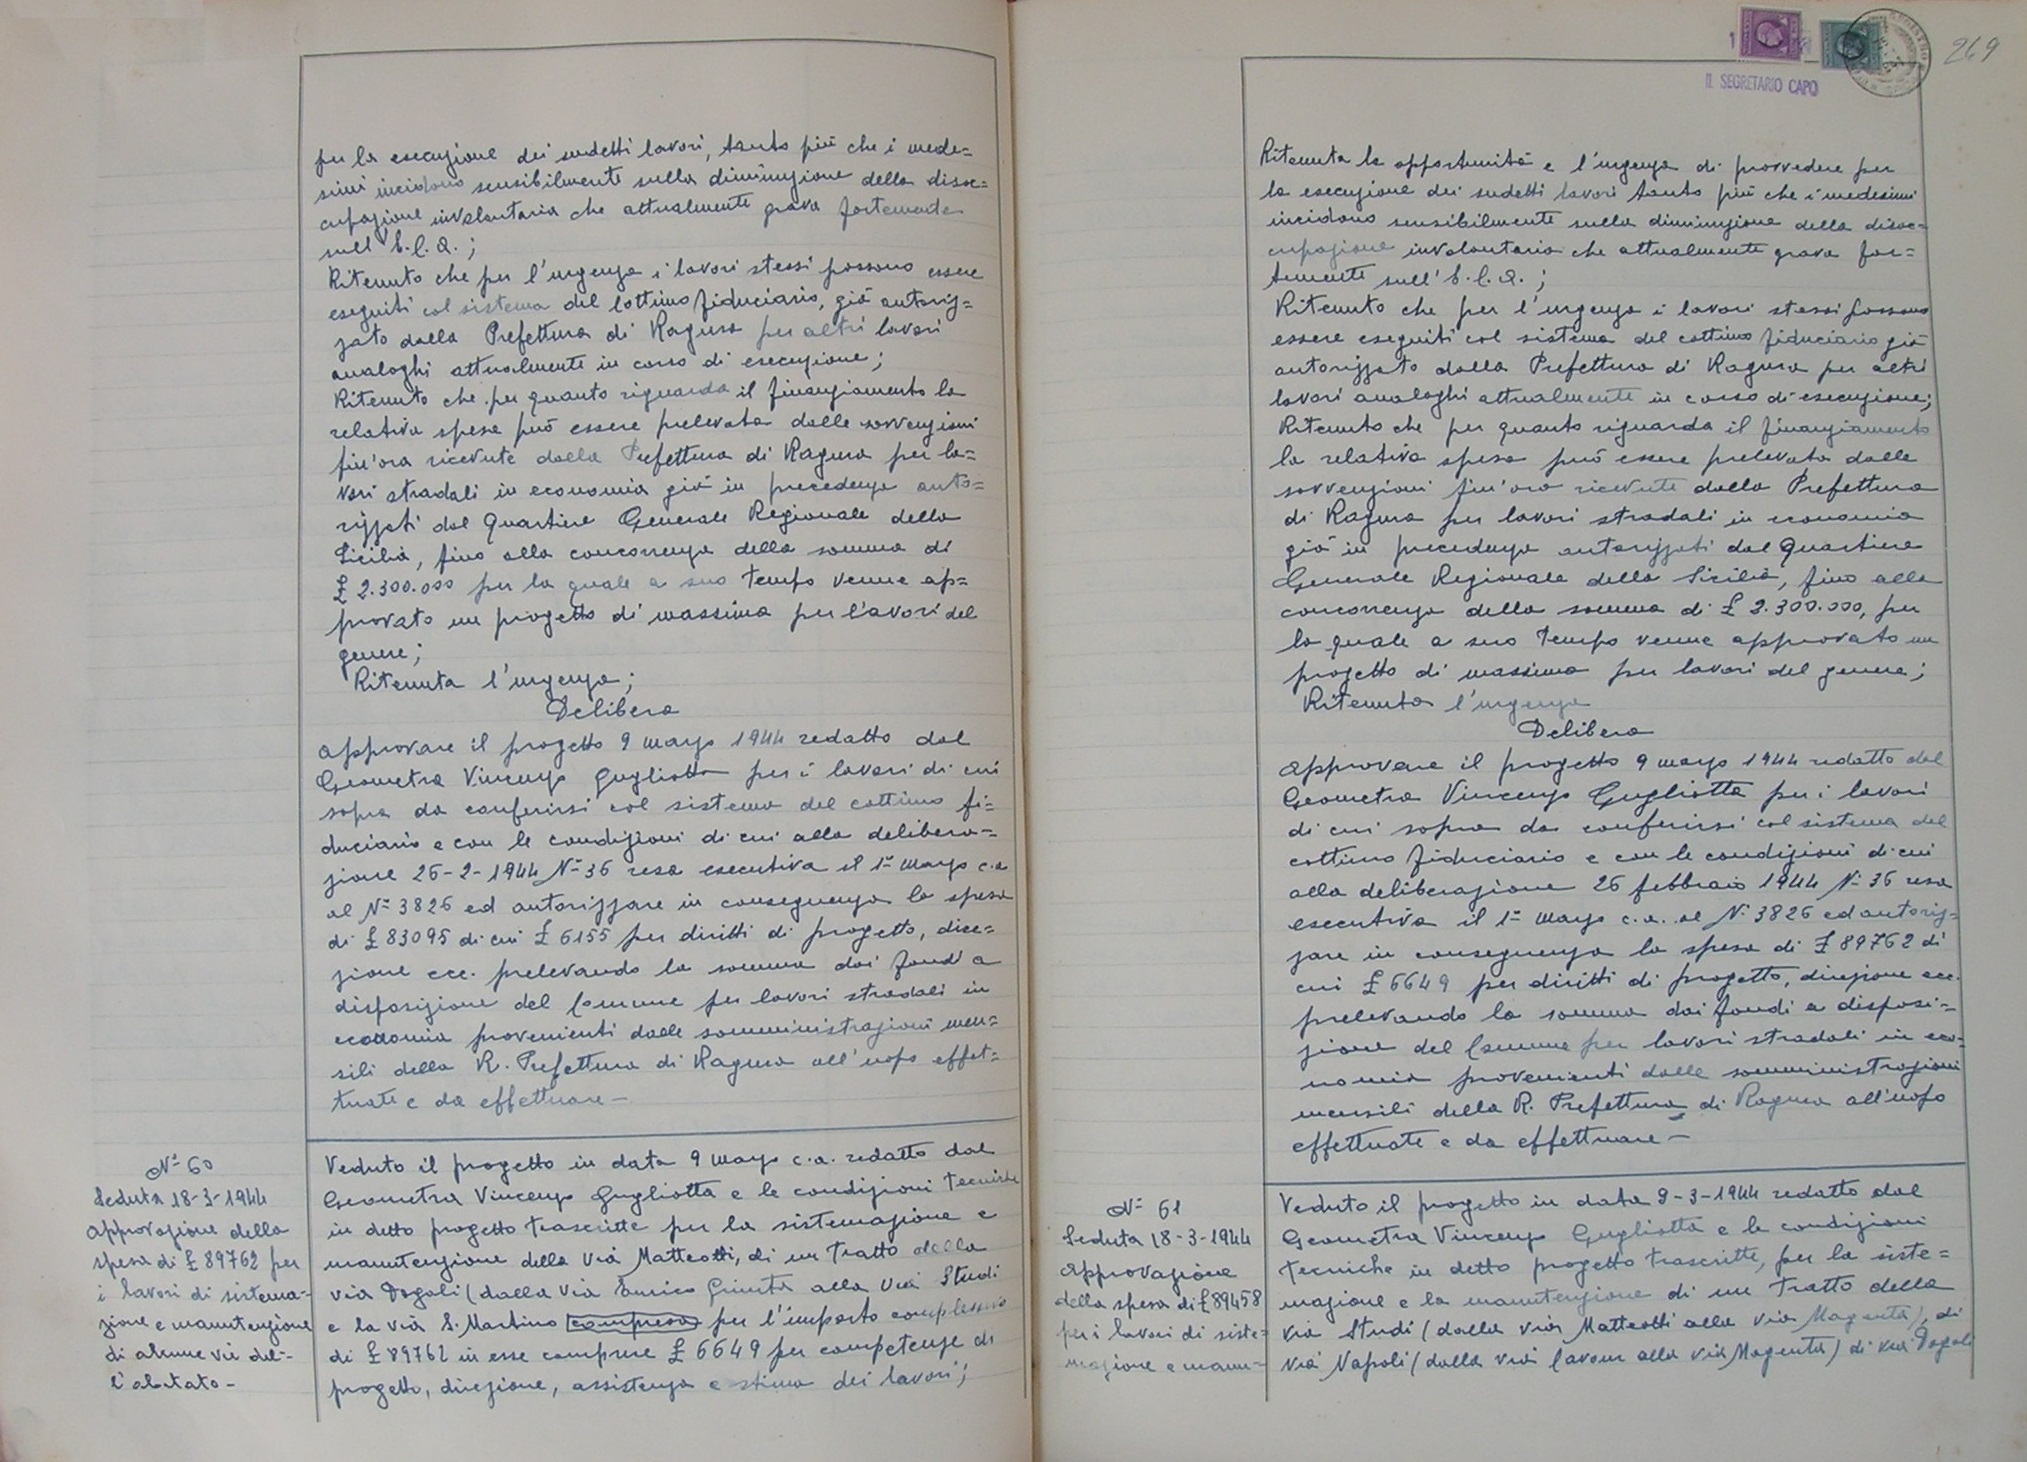 per la esecuzione dei sudetti lavori, tanto più che i mede=
simi incidono sensibilmente sulla diminuzione della disoc=
cupazione involontaria che attualmente grava fortemente
sull'E.C.A.;
Ritenuto che per l'urgenza i lavori stessi possono essere
eseguiti col sistema del cottimo fiduciario, già autoriz=
zato dalla Prefettura di Ragusa per altri lavori
analoghi attualmente in corso di esecuzione;
Ritenuto che per quanto riguarda il finanziamento la
relativa spesa può essere prelevata dalle sovvenzioni
fin'ora ricevute dalla Prefettura di Ragusa per la=
vori stradali in economia già in precedenza auto=
rizzati dal Quartiere Generale Regionale della
Sicilia, fino alla concorrenza della somma di
£ 2.300.000 per la quale a suo tempo venne ap=
provato un progetto di massima per lavori del
genere;
Ritenuta l'urgenza;
Delibera
approvare il progetto 9 marzo 1944 redatto dal
Geometra Vincenzo Gugliotta per i lavori di cui
sopra da conferirsi col sistema del cottimo fi=
duciario e con le condizioni di cui alla delibera=
zione 26-2-1944 N° 36 resa esecutiva il 1° marzo c.a.
al N° 3826 ed autorizzare in conseguenza la spesa
di £ 83095 di cui £ 6155 per diritti di progetto, dire=
zione ecc. prelevando la somma dai fondi a
disposizione del Comune per lavori stradali in
economia provenienti dalle somministrazioni men=
sili della R. Prefettura di Ragusa all'uopo effet=
tuate e da effettuare—
N° 60
Seduta 18-3-1944
Approvazione della
spesa di £ 89762 per
i lavori di sistema=
zione e manutenzione
di alcune vie del=
l'abitato—
Veduto il progetto in data 9 marzo c.a. redatto dal
Geometra Vincenzo Gugliotta e le condizioni tecniche
in detto progetto trascritte per la sistemazione e
manutenzione della via Matteotti, di un tratto della
via Dogali (dalla via Enrico Giunta alla via Studi
e la via S. Martino compresa per l'importo complessivo
di £ 89762 in esse comprese £ 6649 per competenze di
progetto, direzione, assistenza e stima dei lavori;
269
IL SEGRETARIO CAPO
Ritenuta la opportunità e l'urgenza di provvedere per
la esecuzione dei sudetti lavori tanto più che i medesimi
incidono sensibilmente sulla diminuzione della disoc=
cupazione involontaria che attualmente grava for=
temente sull'E.C.A.;
Ritenuto che per l'urgenza i lavori stessi possono
essere eseguiti col sistema del cottimo fiduciario già
autorizzato dalla Prefettura di Ragusa per altri
lavori analoghi attualmente in corso di esecuzione;
Ritenuto che per quanto riguarda il finanziamento
la relativa spesa può essere prelevata dalle
sovvenzioni fin'ora ricevute dalla Prefettura
di Ragusa per lavori stradali in economia
già in precedenza autorizzati dal Quartiere
Generale Regionale della Sicilia, fino alla
concorrenza della somma di £ 2.300.000, per
la quale a suo tempo venne approvato un
progetto di massima per lavori del genere;
Ritenuta l'urgenza
Delibera
approvare il progetto 9 marzo 1944 redatto dal
Geometra Vincenzo Gugliotta per i lavori
di cui sopra da conferirsi col sistema del
cottimo fiduciario e con le condizioni di cui
alla deliberazione 26 febbraio 1944 N° 36 resa
esecutiva il 1° marzo c.a. al N° 3826 ed autoriz=
zare in conseguenza la spesa di £ 89762 di
cui £ 6649 per diritti di progetto, direzione ecc.
prelevando la somma dai fondi a disposi=
zione del Comune per lavori stradali in eco=
nomia provenienti dalle somministrazioni
mensili della R. Prefettura di Ragusa all'uopo
effettuate e da effettuare—
N° 61
Seduta 18-3-1944
Approvazione
della spesa di £ 89458
per i lavori di siste=
mazione e manu=
Veduto il progetto in data 9-3-1944 redatto dal
Geometra Vincenzo Gugliotta e le condizioni
tecniche in detto progetto trascritte, per la siste=
mazione e la manutenzione di un tratto della
via Studi (dalla via Matteotti alla via Magenta), di
via Napoli (dalla via Cavour alla via Magenta) di via Dogali